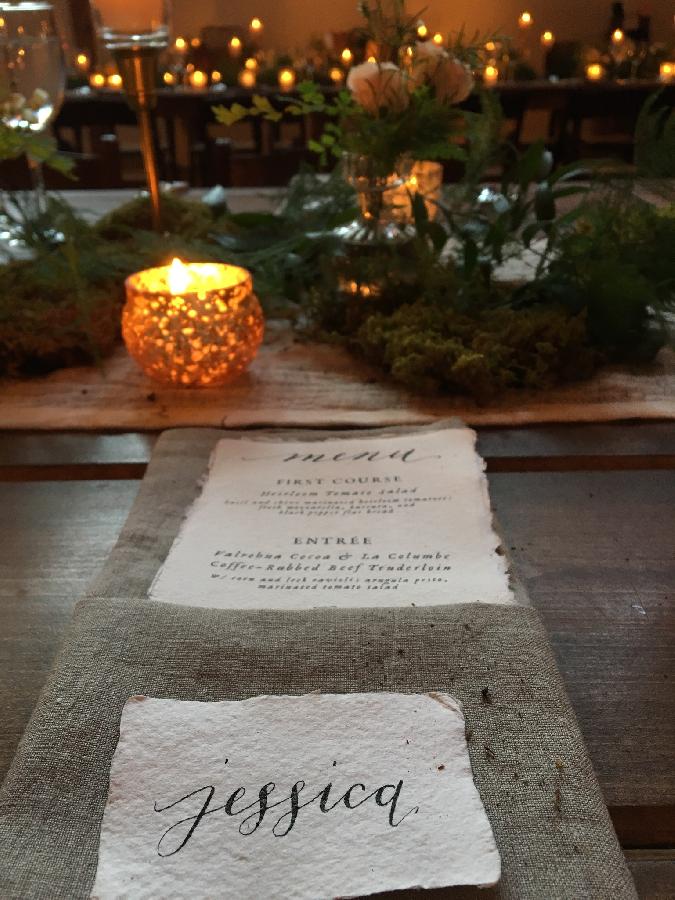 menu
FIRST COURSE
Heirloom Tomato Salad
basil and chive marinated heirloom tomatoes;
fresh mozzarella, burrata, and
black pepper flat bread
ENTRÉE
Valrohna Cocoa & La Columbe
Coffee-Rubbed Beef Tenderloin
w/ corn and leek ravioli; arugula pesto,
marinated tomato salad
jessica